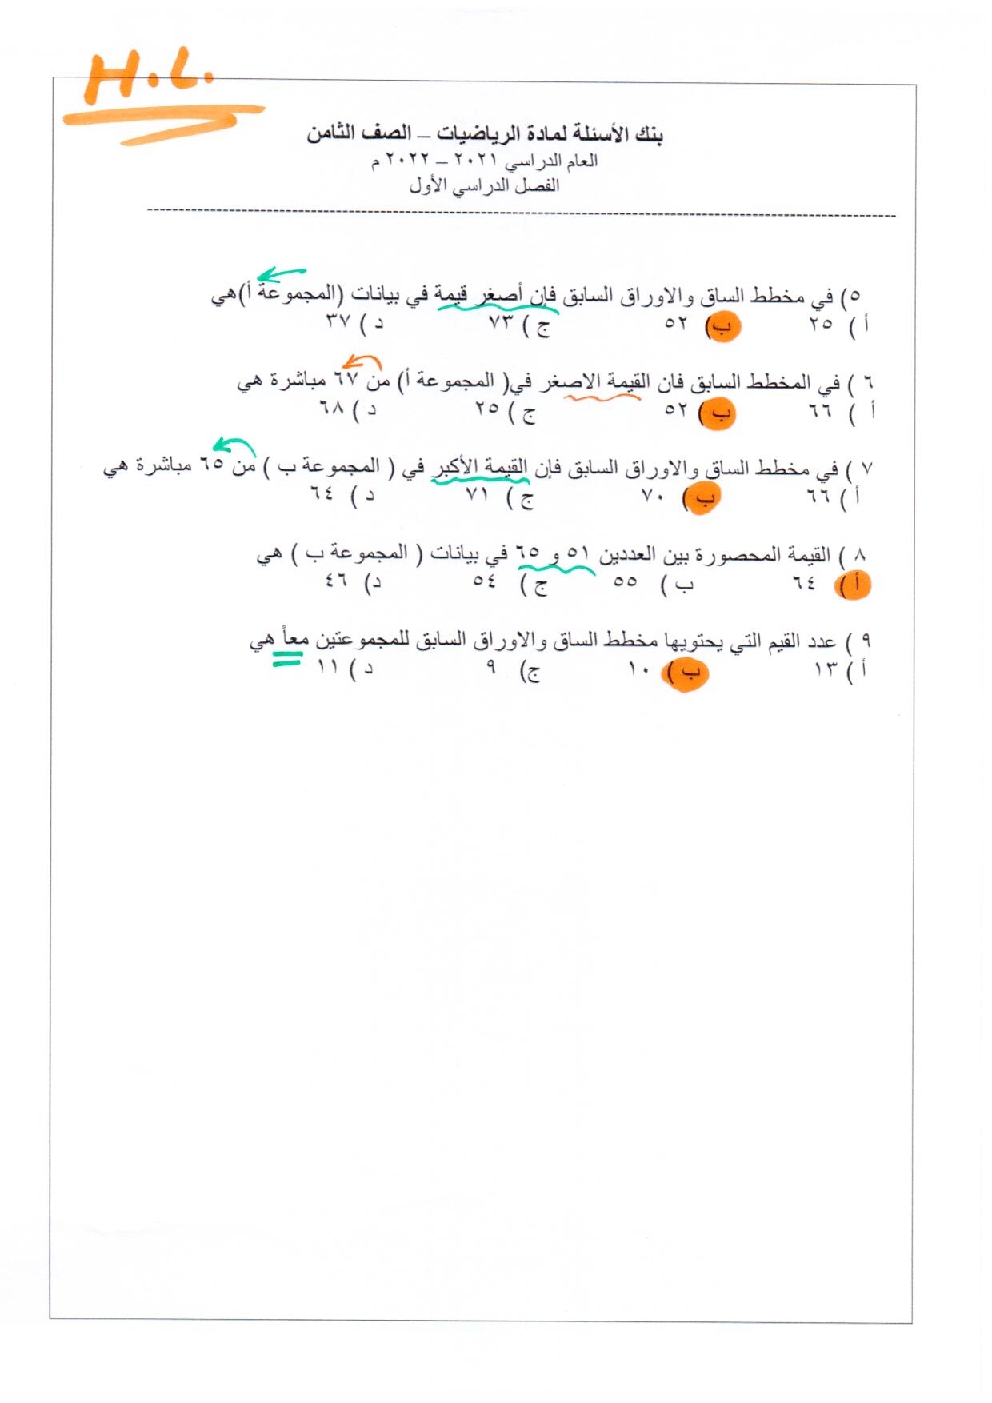 H.L.
بنك الأسئلة لمادة الرياضيات – الصف الثامن
العام الدراسي ٢٠٢١ – ٢٠٢٢ م
الفصل الدراسي الأول
٥) في مخطط الساق والاوراق السابق فإن أصغر قيمة في بيانات (المجموعة أ)هي
أ ) ٢٥ ب) ٥٢ ج ) ٧٣ د ) ٣٧
٦ ) في المخطط السابق فان القيمة الاصغر في( المجموعة أ) من ٦٧ مباشرة هي
أ ) ٦٦ ب ) ٥٢ ج ) ٢٥ د ) ٦٨
٧ ) في مخطط الساق والاوراق السابق فإن القيمة الأكبر في ( المجموعة ب ) من ٦٥ مباشرة هي
أ ) ٦٦ ب ) ٧٠ ج ) ٧١ د ) ٦٤
٨ ) القيمة المحصورة بين العددين ٥١ و ٦٥ في بيانات ( المجموعة ب ) هي
أ ) ٦٤ ب ) ٥٥ ج ) ٥٤ د) ٤٦
٩ ) عدد القيم التي يحتويها مخطط الساق والاوراق السابق للمجموعتين معاً هي
أ ) ١٣ ب ) ١٠ ج) ٩ د ) ١١